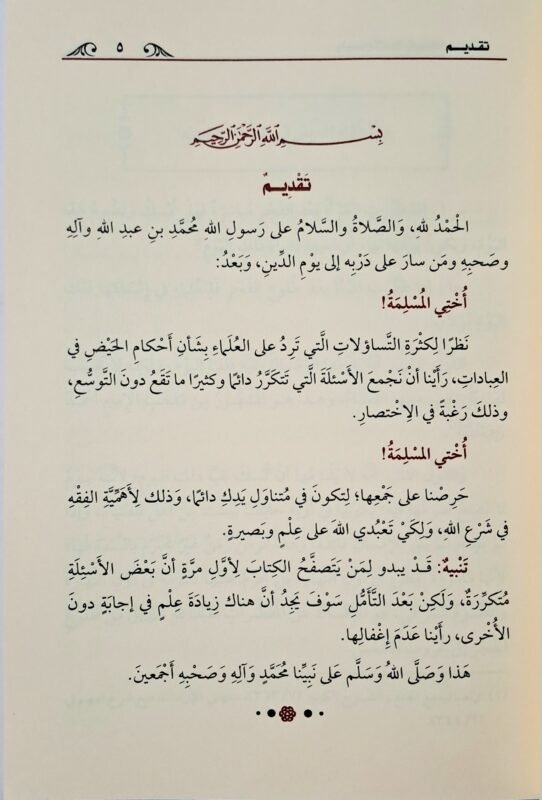 تقديم ٥
بِسْمِ اللَّهِ الرَّحْمَٰنِ الرَّحِيمِ
تَقْدِيمٌ
الْحَمْدُ لله، وَالصَّلاةُ والسَّلامُ على رَسولِ الله مُحَمَّدِ بنِ عبدِ اللهِ وآلِهِ
وصَحبِهِ ومَن سارَ على دَرْبِهِ إلى يوْمِ الدِّينِ، وَبَعْدُ:
أُخْتِي المُسْلِمَةُ!
نَظرًا لِكثْرَةِ التَّساؤلاتِ الَّتي تَرِدُ على العُلَماءِ بِشَأنِ أحْكامِ الحَيْضِ في
العِباداتِ، رَأَيْنا أنْ نَجْمعَ الأسْئلَةَ الَّتي تَتكرَّرُ دائمًا وكثيرًا ما تَقَعُ دونَ التَّوسُّعِ،
وذلكَ رَغْبةً في الِاخْتصارِ.
أُخْتي المسْلِمَةُ!
حَرِصْنا على جَمْعِها؛ لِتكونَ في مُتناوَلِ يَدِكِ دائمًا، وَذلك لِأهَمِّيَّةِ الفِقْهِ
في شَرْعِ اللهِ، وَلِكَيْ تَعْبُدي اللهَ على عِلْمٍ وبَصيرةٍ.
تَنْبيهٌ: قَدْ يبدو لِمَنْ يَتصفَّحُ الكِتابَ لِأوَّلِ مرَّةٍ أنَّ بَعْضَ الأسْئِلَةِ
مُتكرِّرَةٌ، وَلَكِنْ بَعْدَ التَّأمُّلِ سَوْفَ يَجِدُ أنَّ هناك زِيادَةَ عِلْمٍ في إجابَةٍ دونَ
الأُخْرى، رأيْنا عَدَمَ إغْفالِها.
هَذا وَصَلَّى اللهُ وَسَلَّم عَلى نَبِيِّنا مُحَمَّدٍ وَآلِهِ وَصَحْبِهِ أجْمَعينَ.